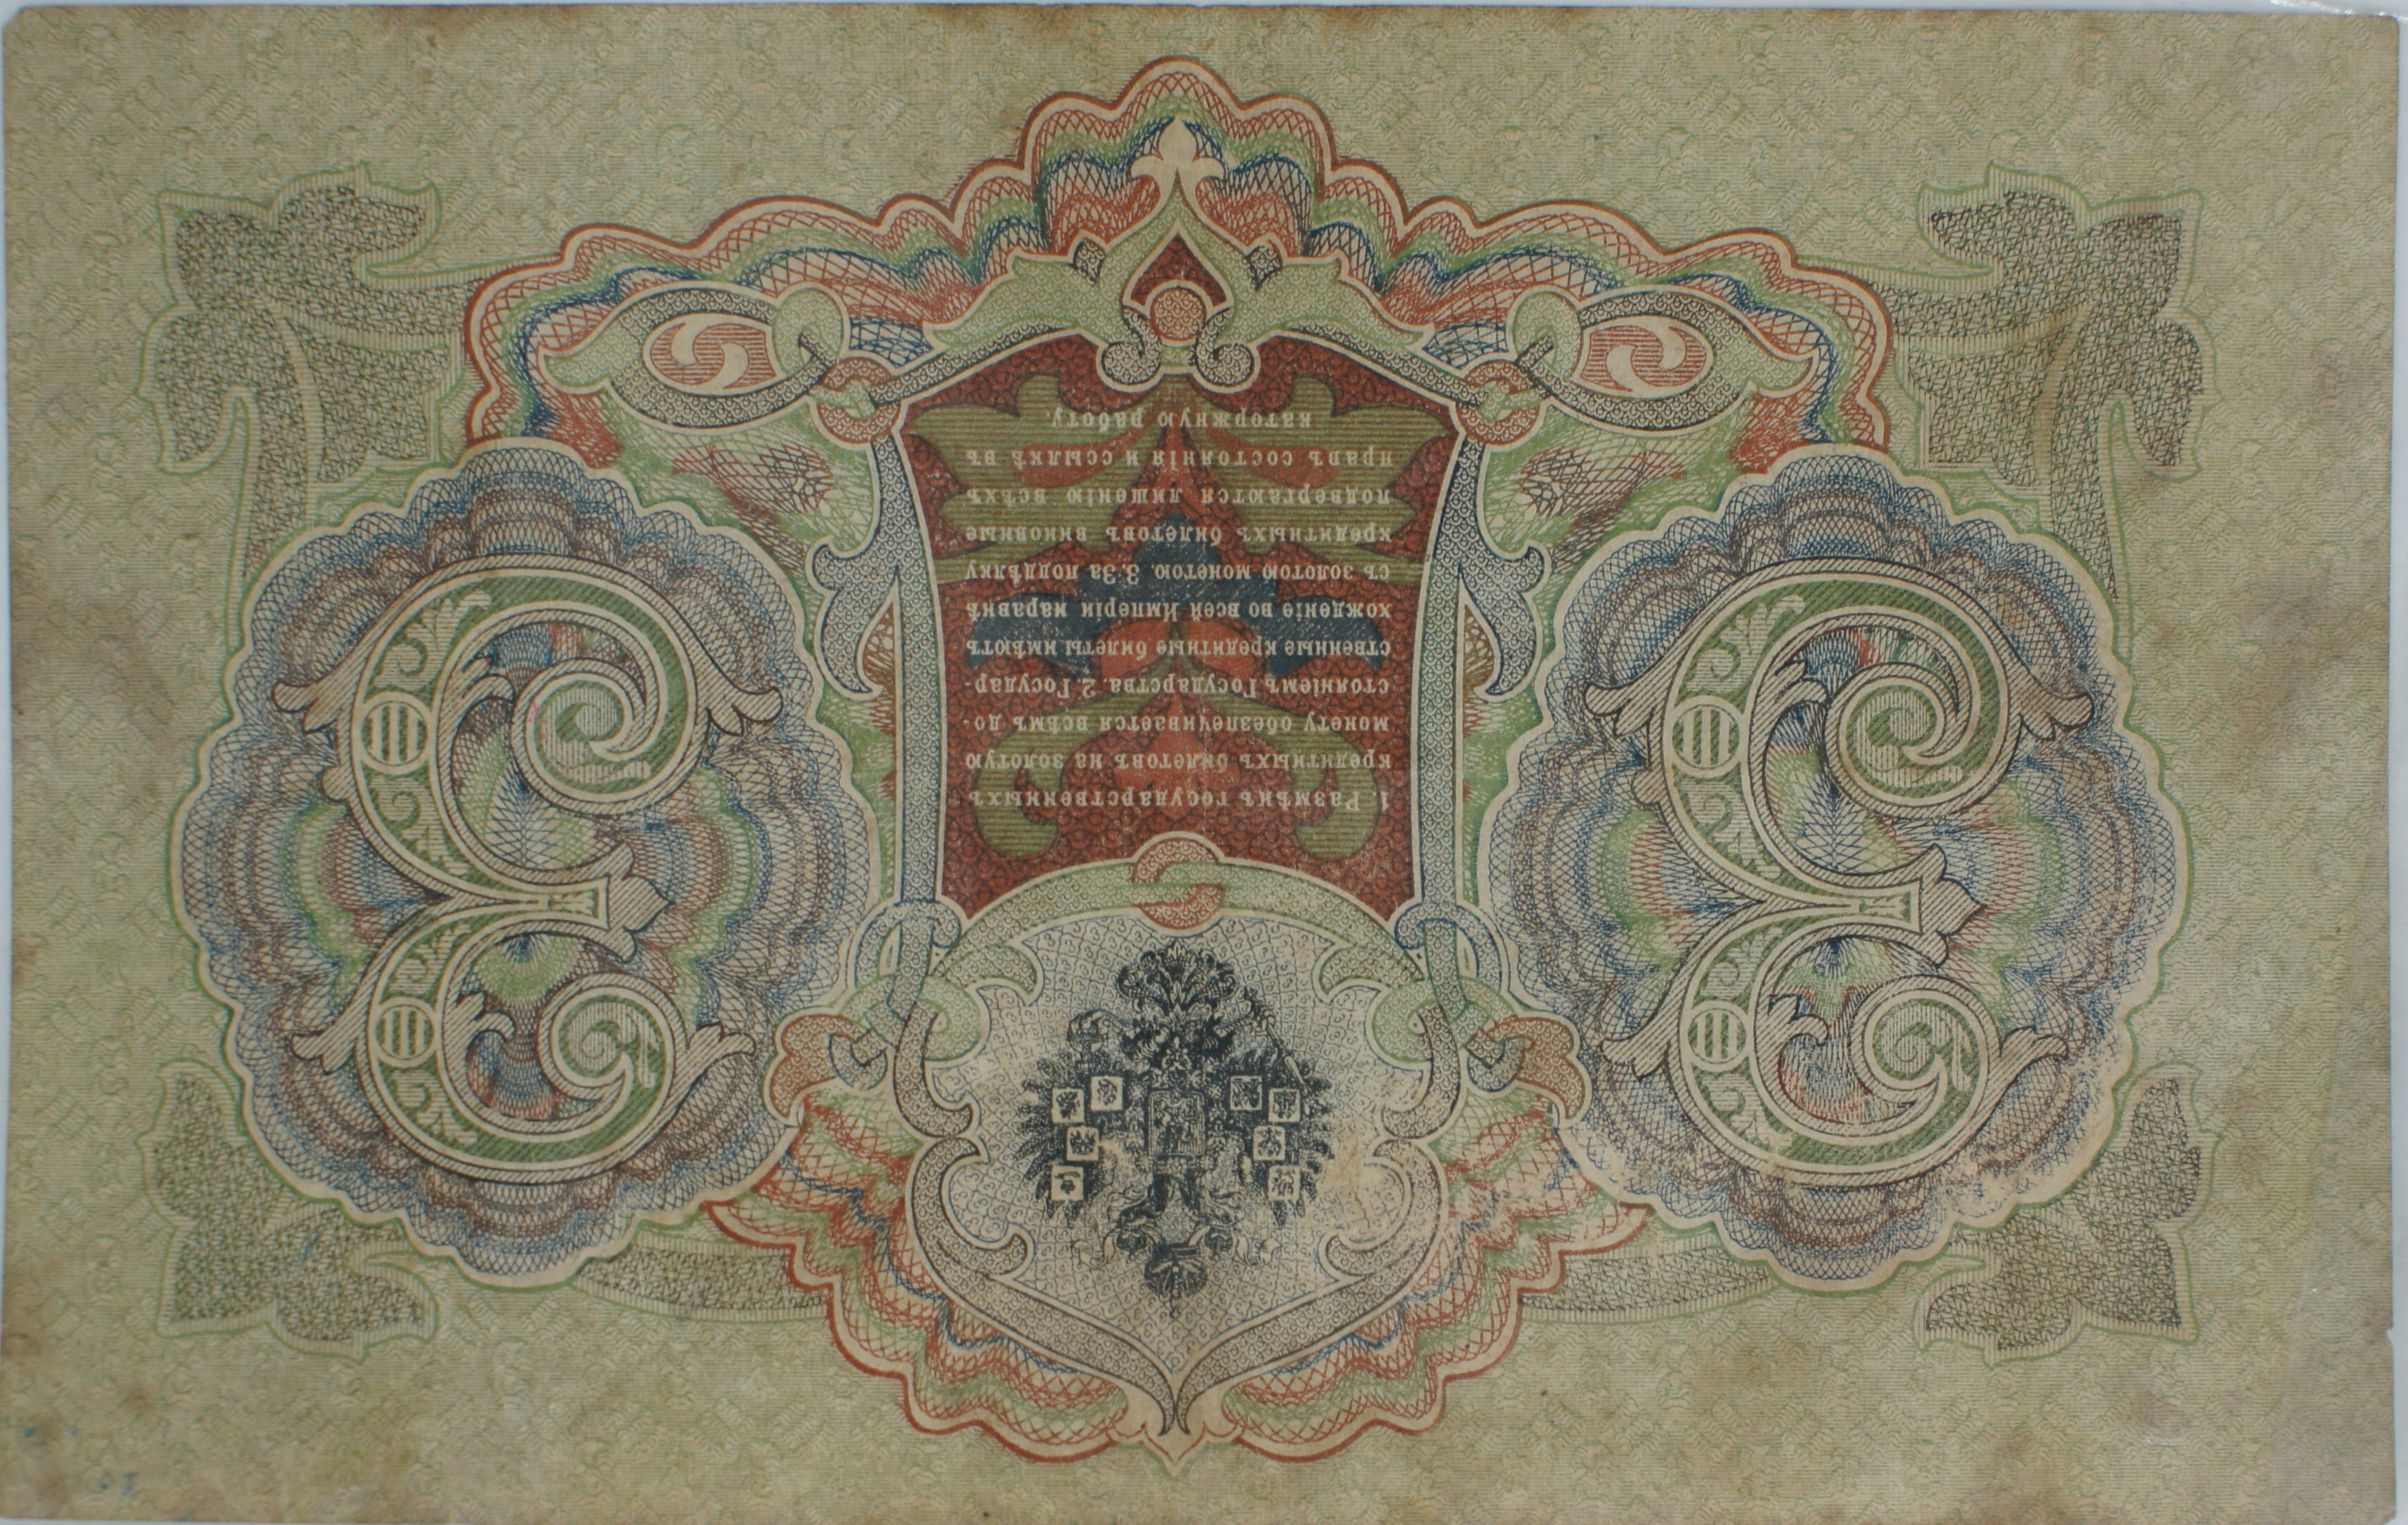 1. Размѣнъ государственныхъ
кредитныхъ билетовъ на золотую
монету обезпечивается всѣмъ до-
стояніемъ Государства. 2. Государ-
ственные кредитные билеты имѣютъ
хожденіе во всей Имперіи наравнѣ
съ золотою монетою. 3. За поддѣлку
кредитныхъ билетовъ виновные
подвергаются лишенію всѣхъ
правъ состоянія и ссылкѣ въ
каторжную работу.
3 3